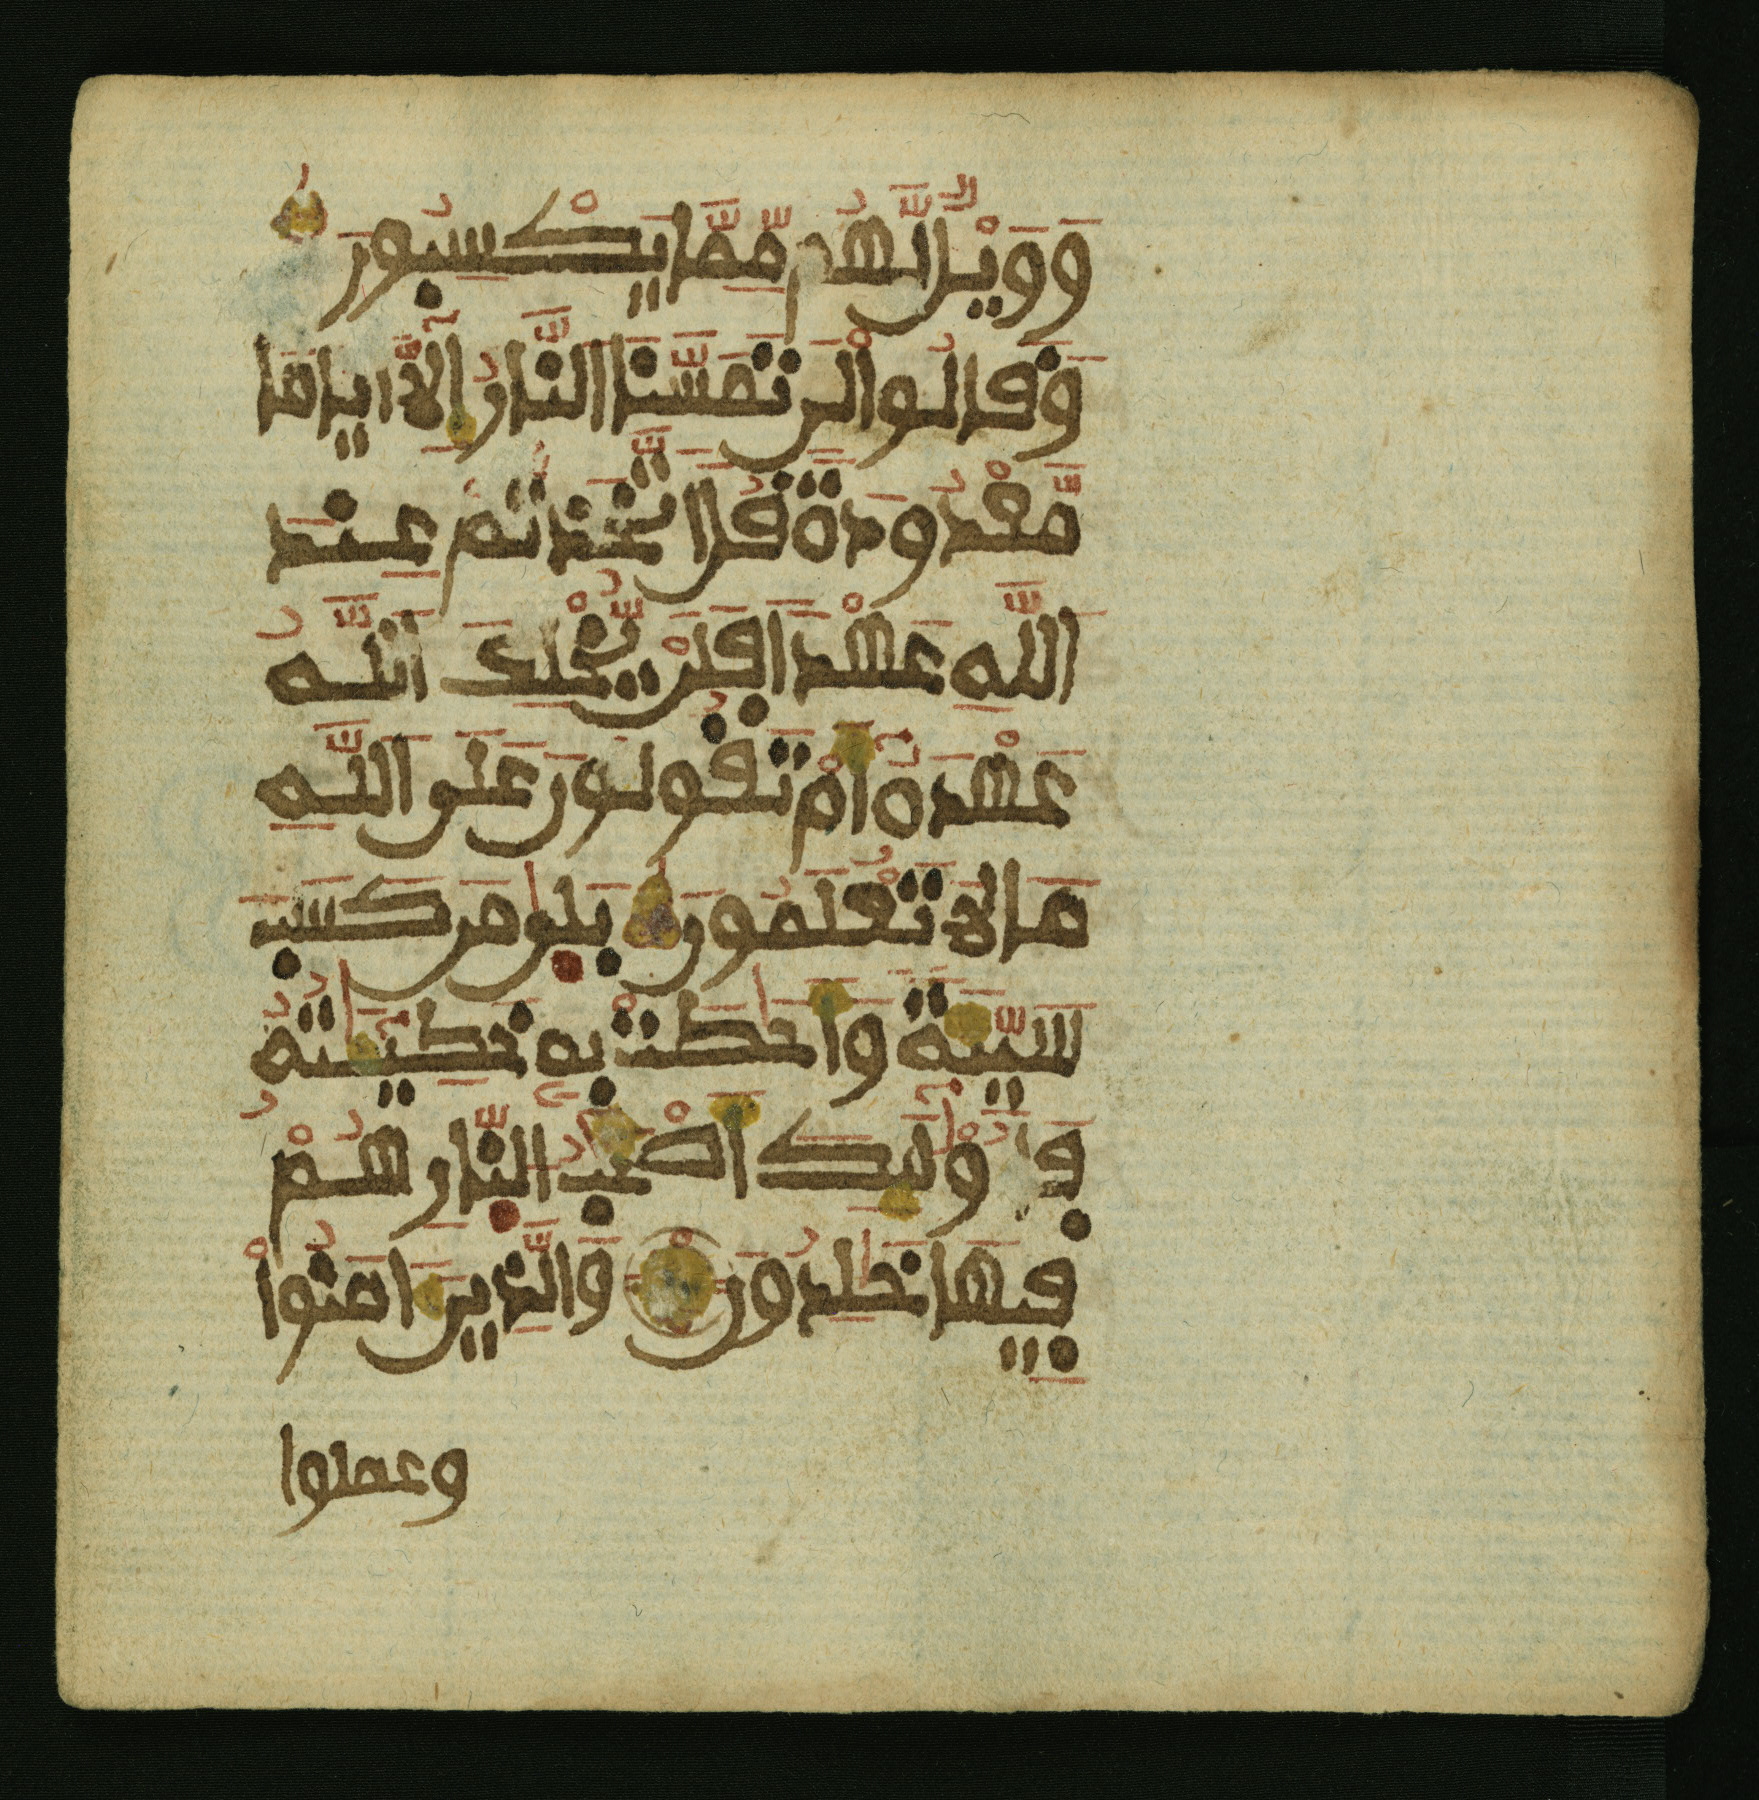 وَوَيْلٌ لَّهُم مِّمَّا يَكْسِبُونَ
وَقَالُواْ لَن تَمَسَّنَا النَّارُ إِلآَّ أَيَّامًا
مَّعْدُودَةً قُلَ اتَّخَذتُّمْ عِندَ
اللَّهِ عَهْدًا فَلَنْ يُّخْلِفَ اللَّهُ
عَهْدَهُ أَمْ تَقُولُونَ عَلَى اللَّهِ
مَا لاَ تَعْلَمُونَ بَلىٰ مَن كَسَبَ
سَيِّئَةً وَأَحٰطَتْ بِهِ خَطِيـَٰٔتُهُ
فَأُوْلَٰئِكَ أَصْحَٰبُ النّارِ هُمْ
فِيهَا خَٰلِدُونَ وَالَّذِينَ ءَامَنُواْ
وعملوا